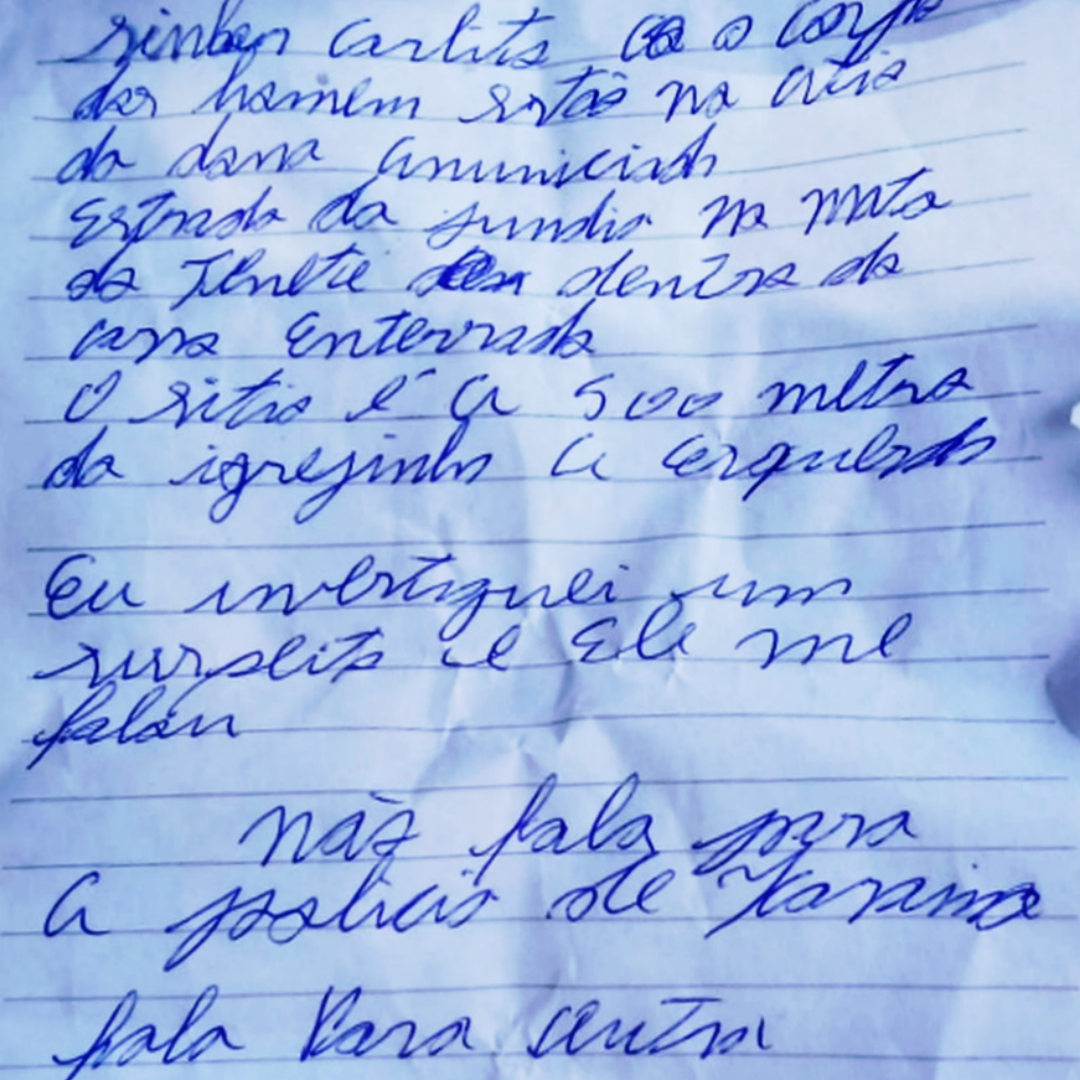 sinhor Carlito o corpo
dos homem estão no citio
da dona anuniciada
Estrada da jundia na mata
da Tenete dentro da
casa Enterrada
O sitio é a 500 metros
da igrejinha a esquerda
Eu investiguei um
suspeito e Ele me
falou
não fala para
a policia de
fala Para outra